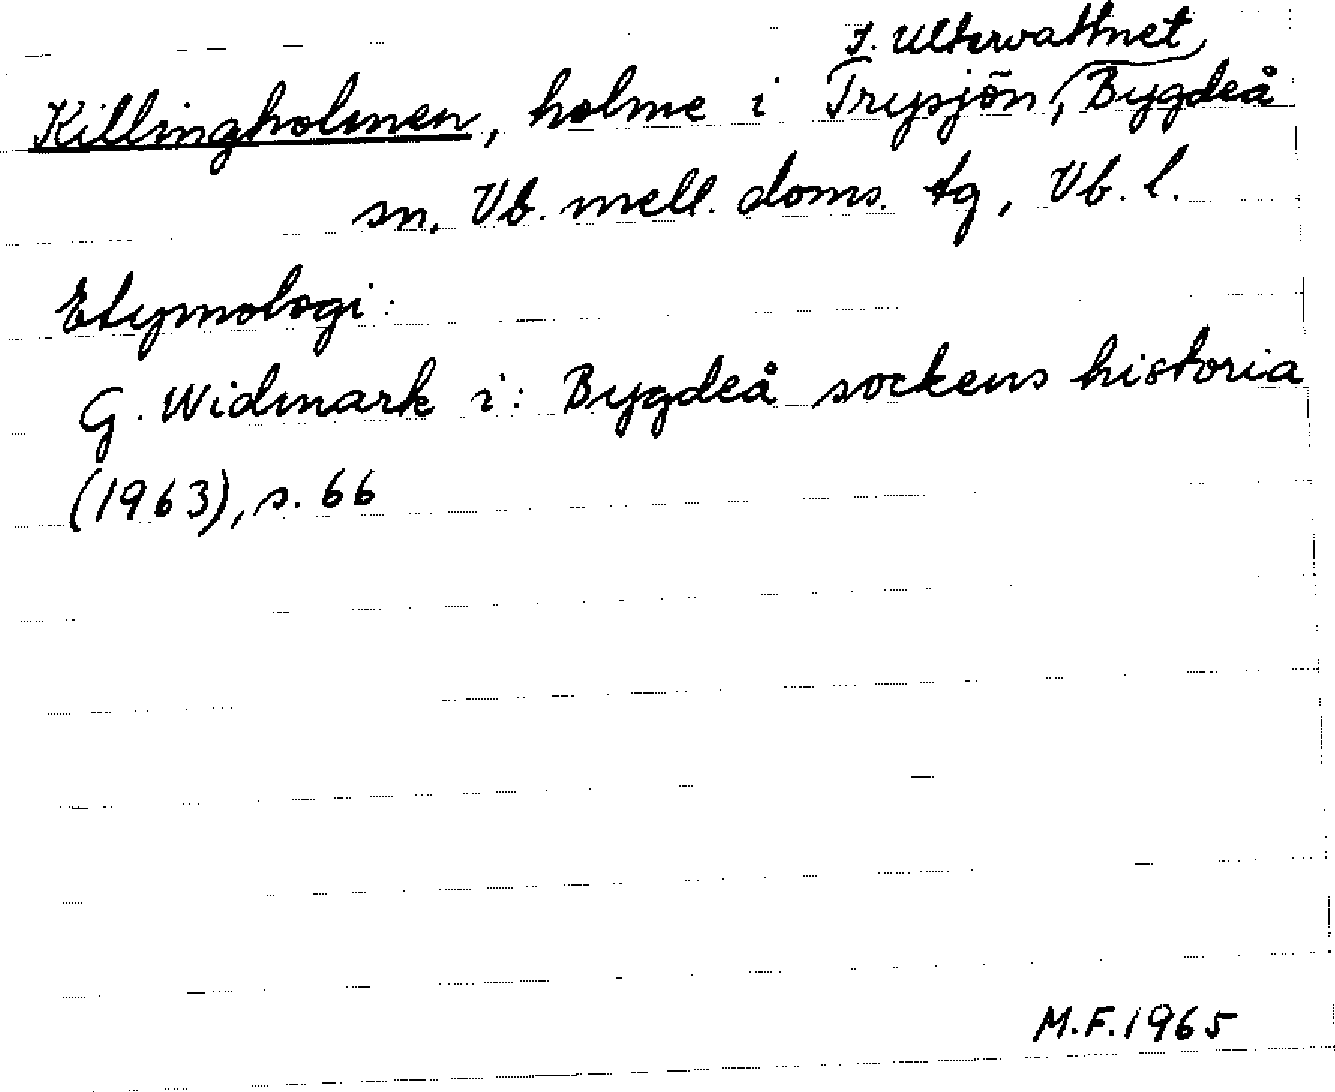 f. Ultervattnet
Killingholmen, holme i Trysjön, Bygdeå
sn, Vb. mell. doms. tg, Vb. l.
Etymologi:
G. Widmark i: Bygdeå sockens historia
(1963), s. 66
M.F. 1965